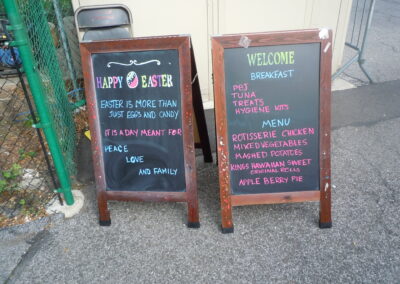 HAPPY EASTER
EASTER IS MORE THAN
JUST EGGS AND CANDY
IT IS A DAY MEANT FOR
PEACE
LOVE
AND FAMILY
WELCOME
BREAKFAST
PBJ
TUNA
TREATS
HYGIENE KITS
MENU
ROTISSERIE CHICKEN
MIXED VEGETABLES
MASHED POTATOES
KINGS HAWAIIAN SWEET
ORIGINAL ROLLS
APPLE BERRY PIE